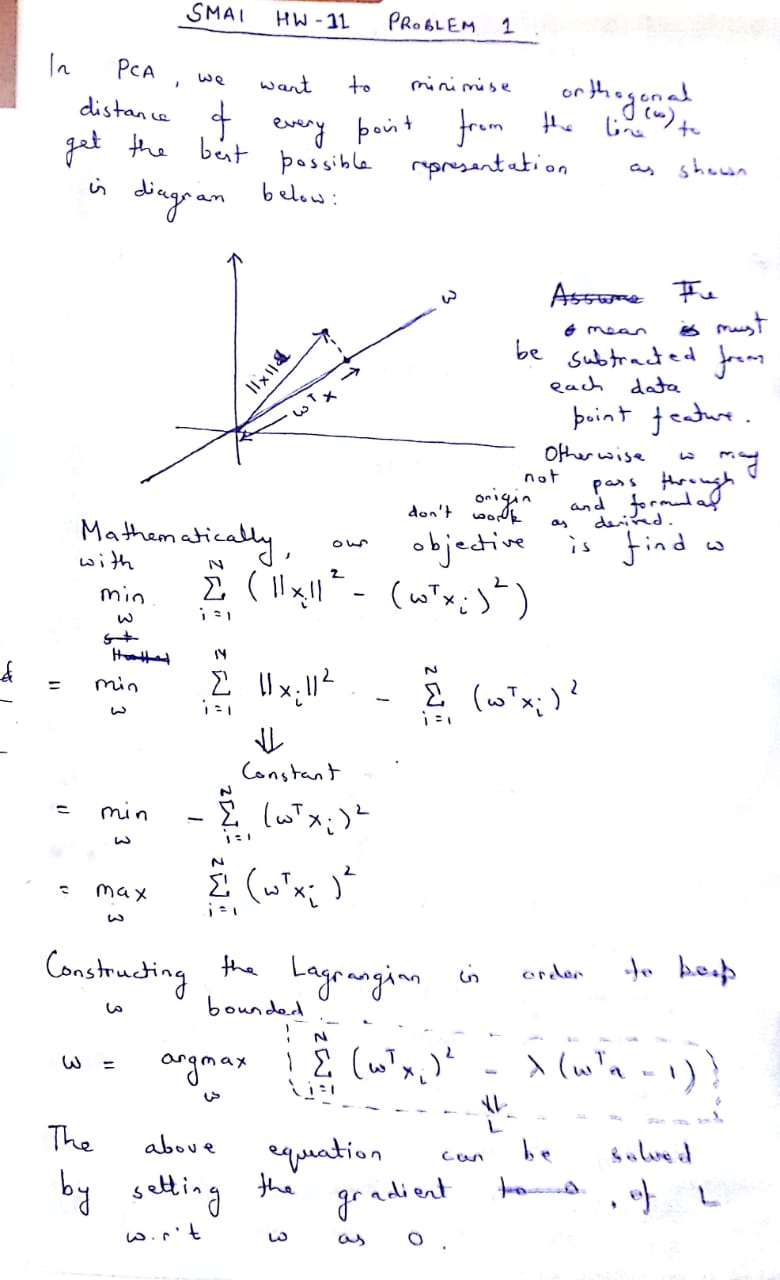 SMAI HW-11 PROBLEM 1
In PCA, we want to minimise orthogonal
distance of every point from the line (w) to
get the best possible representation as shown
in diagram below:
w
||x||
wᵀx
Assume The
mean is must
be subtracted from
each data
point feature.
Otherwise w may
not pass through
origin and formulas
don't work as derived.
Mathematically, our objective is find w
with
min w Σ i=1 N (||xᵢ||² - (wᵀxᵢ)²)
s.t
= min w Σ i=1 N ||xᵢ||² - Σ i=1 N (wᵀxᵢ)²
⇓
Constant
= min w - Σ i=1 N (wᵀxᵢ)²
= max w Σ i=1 N (wᵀxᵢ)²
Constructing the Lagrangian in order to keep
w bounded
w = argmax w { Σ i=1 N (wᵀxᵢ)² - λ(wᵀn - 1) }
⇓
L
The above equation can be solved
by setting the gradient to 0, of L
w.r.t w as 0.